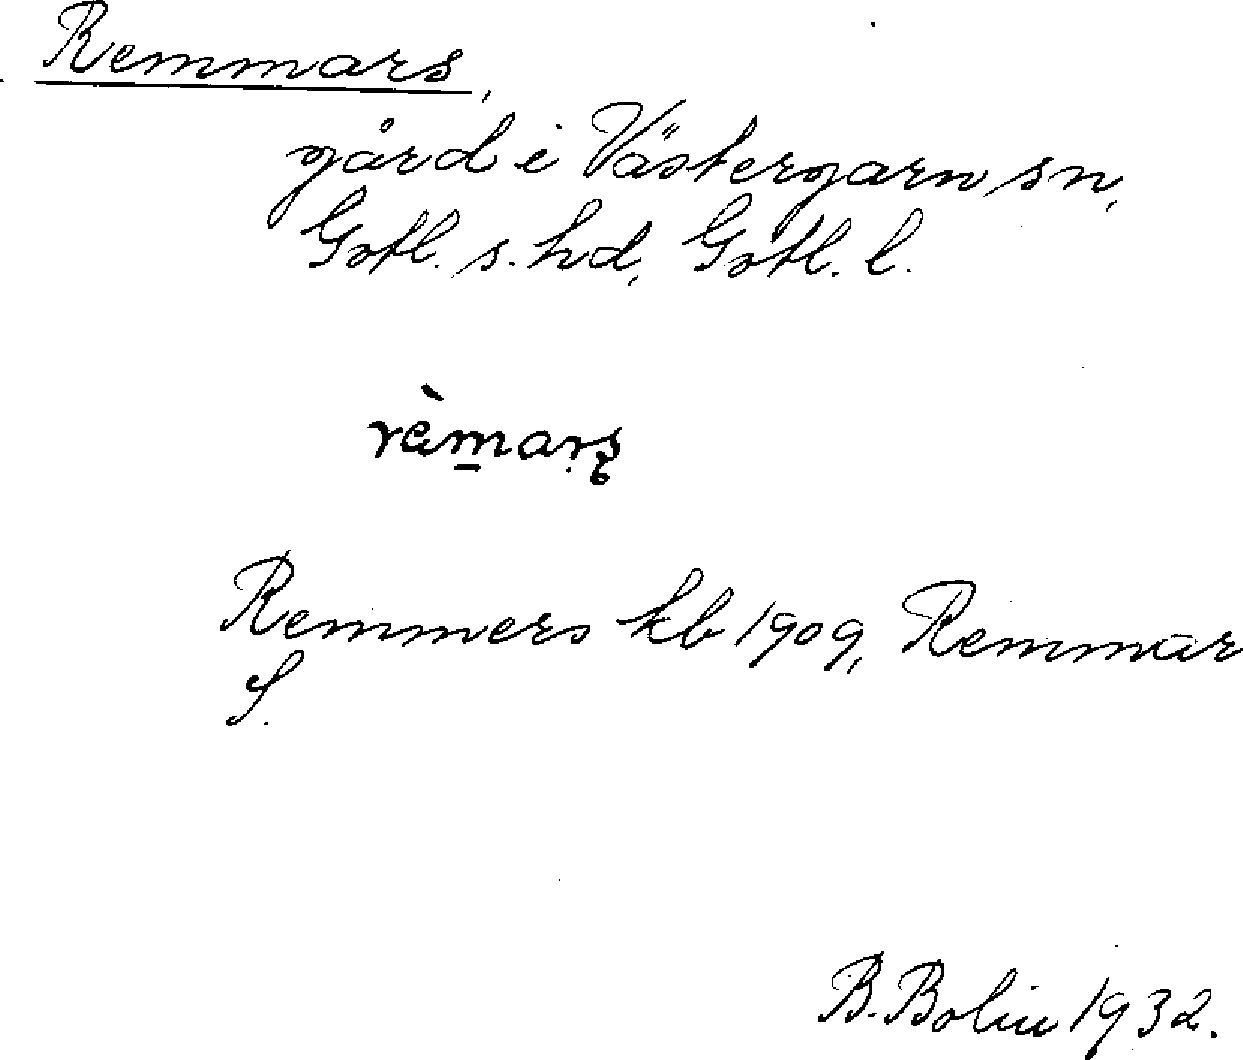 Remmars,
gård i Västergarn sn,
Gotl. s. hd, Gotl. l.
rèm̲arş
Remmers kb 1909, Remmar
S.
B. Bolin 1932.